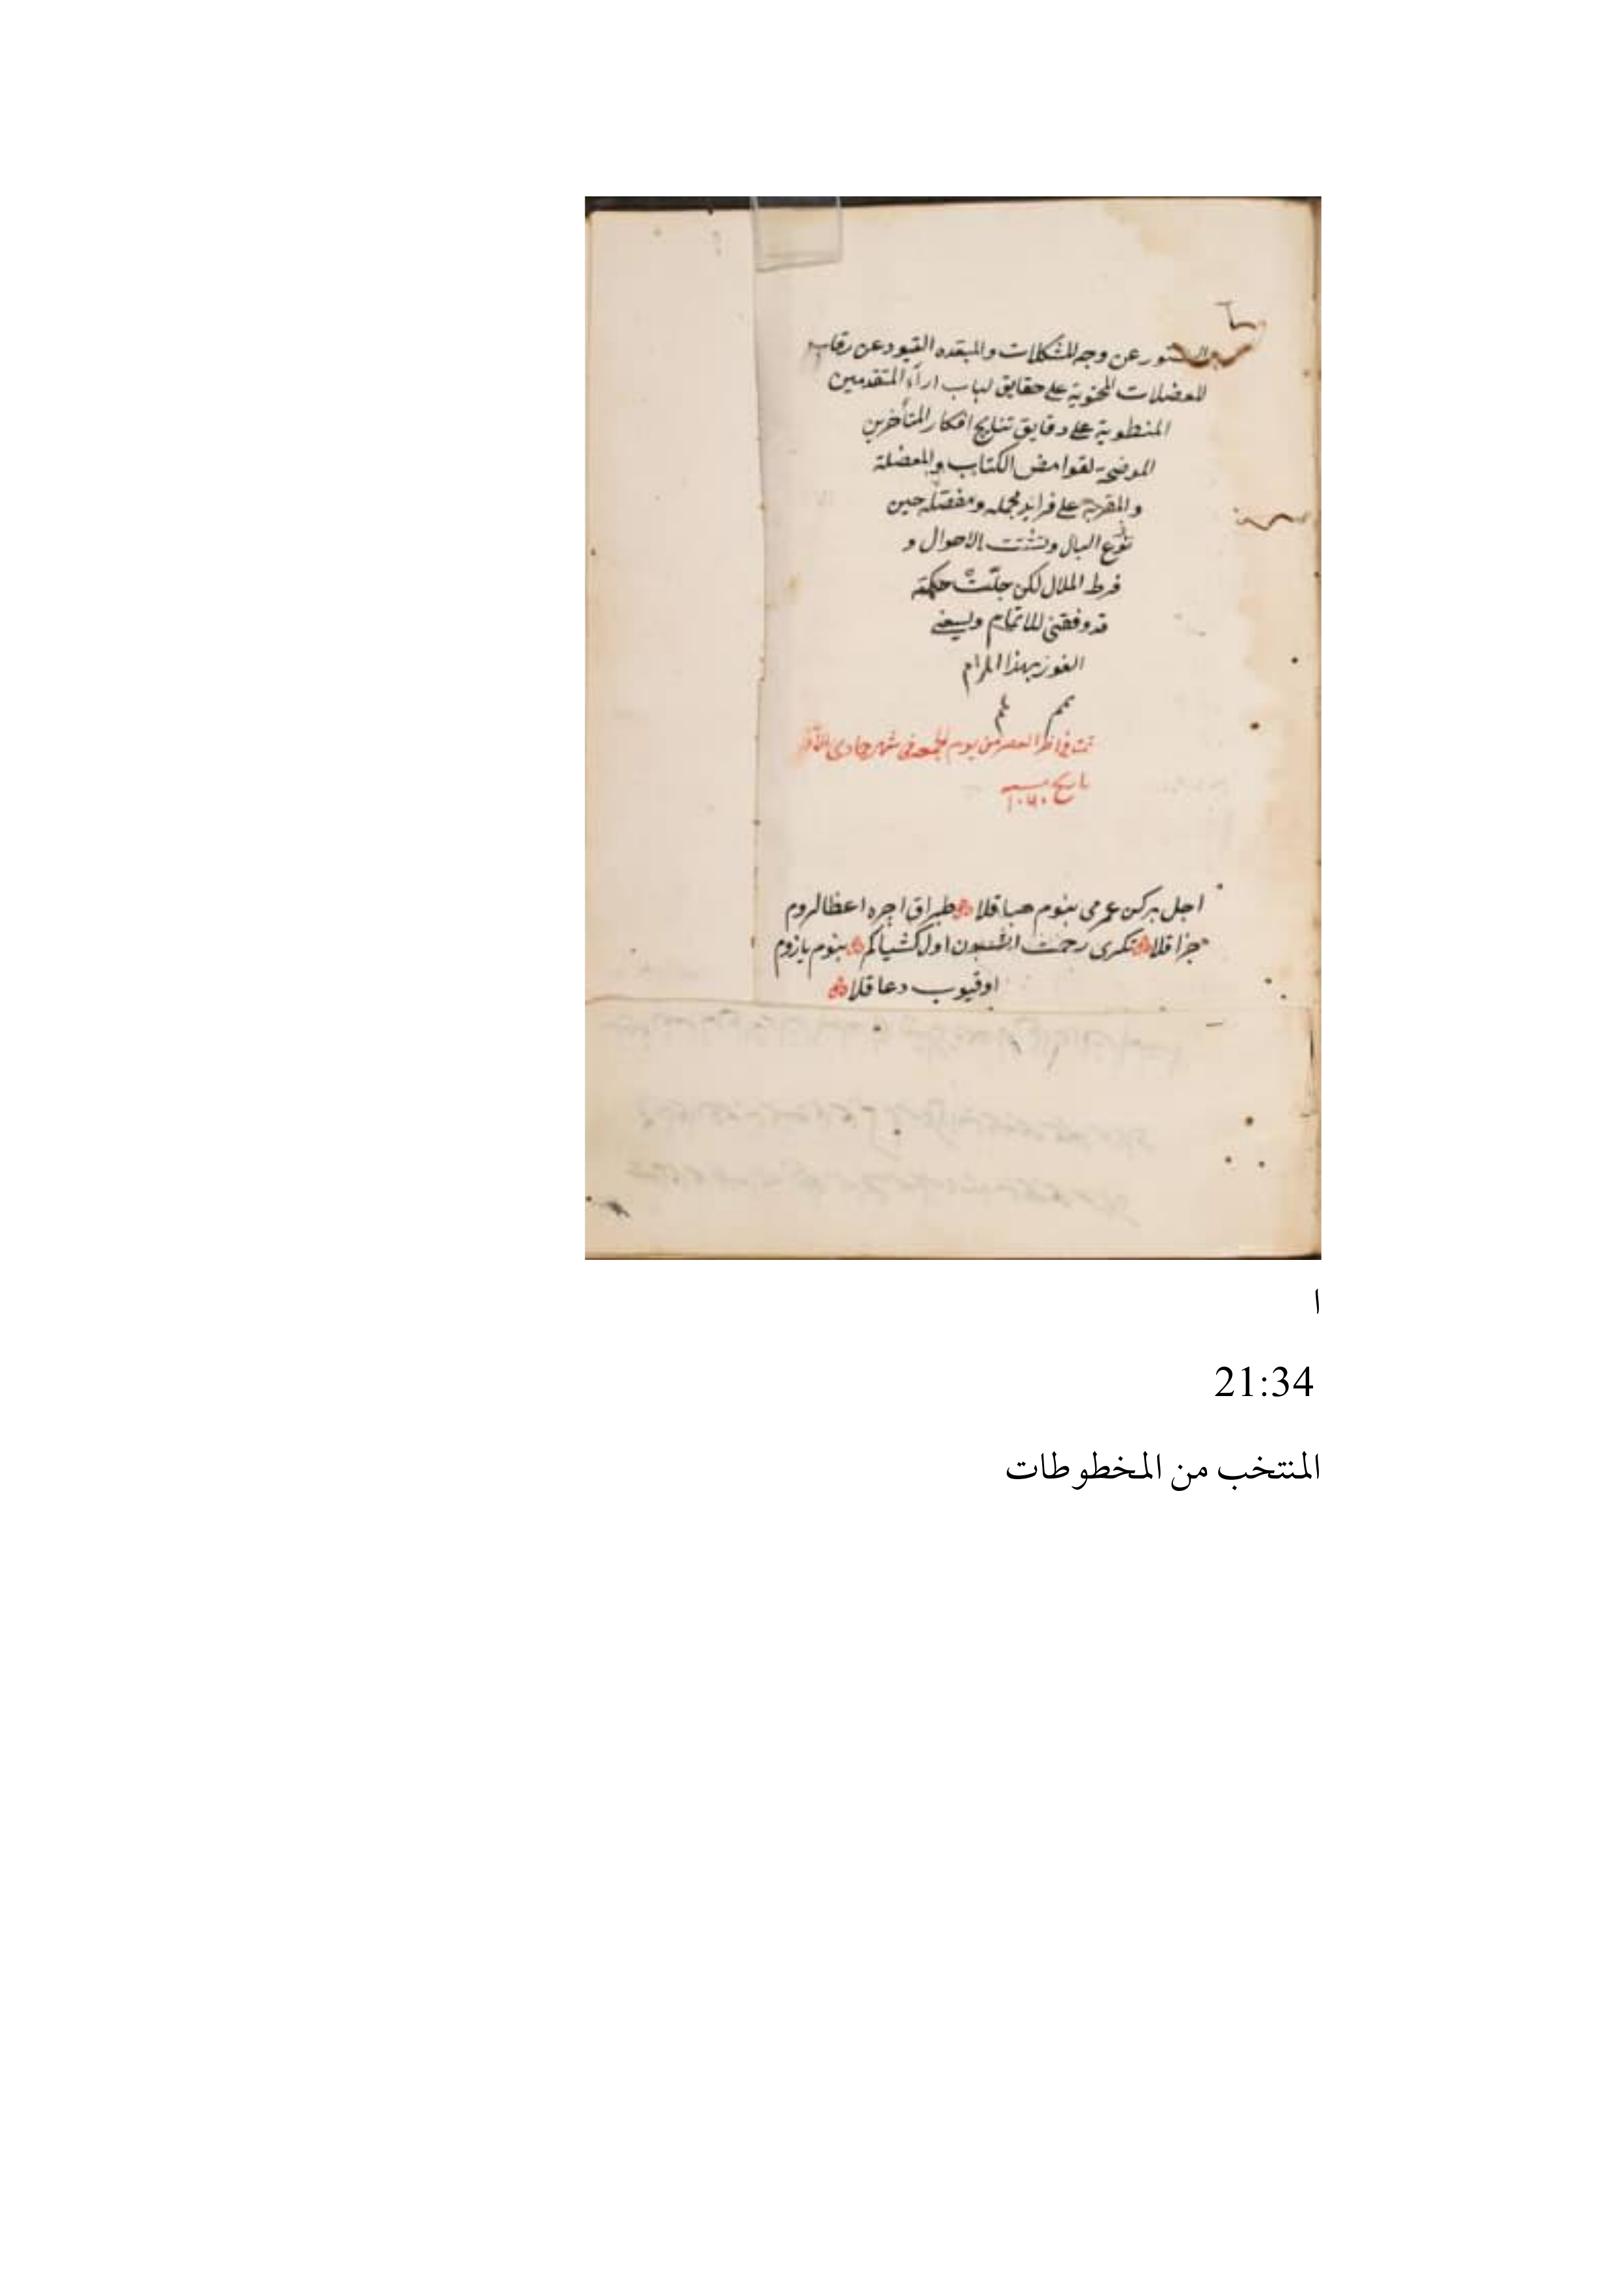 الستور عن وجه المشكلات والمبعده القيود عن رقاب
المعضلات المحتوية على حقايق لباب اراء المتقدمين
المنطوية على دقايق نتايج افكار المتأخرين
الموضحة لغوامض الكتاب والمعضلة
على فرايد مجمله ومفصله حين
توزع البال وتشتت الاحوال و
فرط الملال لكن جلّت حكمته
قد وفقنى للاتمام ويسعنى
الفوز بهذا المرام
تمم تم
تمت فى العصر من يوم الجمعه فى شهر جمادى
تاريخ سنه
اجل بركن عمرمى بنوم هبا قلا طپراق اجره اعظالروم
جزا قلا تكرى رحمت ايتسون اول كشياكم بنوم يازوم
اوقيوب دعا قلا
ا
21:34
المنتخب من المخطوطات